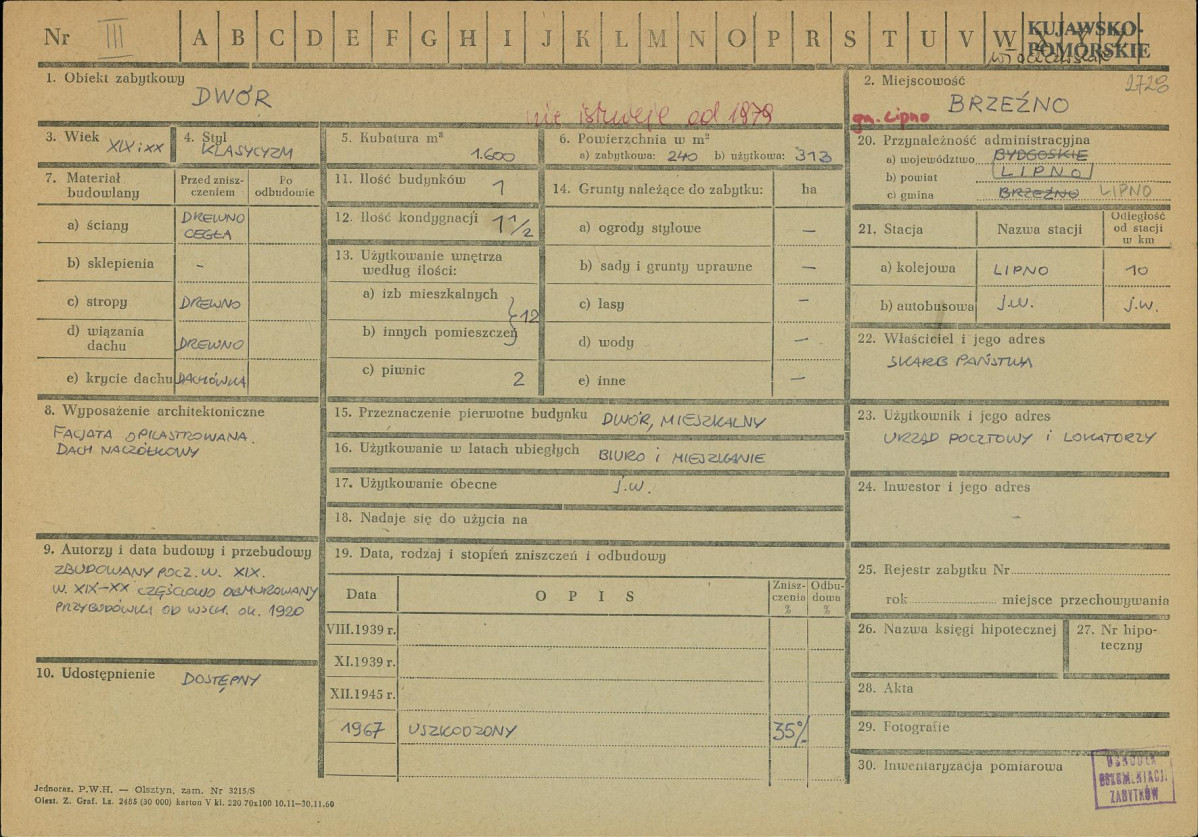 Nr III A B C D E F G H I J K L M N O P R S T U V W
KUJAWSKO-
POMORSKIE
1. Obiekt zabytkowy
DWÓR
nie istnieje od 1979
2. Miejscowość
2728
BRZEŹNO
gm. Lipno
3. Wiek XIX i XX
4. Styl
KLASYCYZM
5. Kubatura m³
1.600
6. Powierzchnia w m²
a) zabytkowa: 240 b) użytkowa: 313
20. Przynależność administracyjna
a) województwo BYDGOSKIE
b) powiat LIPNO
c) gmina BRZEŹNO LIPNO
7. Materiał
budowlany
Przed znisz-
czeniem
Po
odbudowie
a) ściany DREWNO
CEGŁA
b) sklepienia –
c) stropy DREWNO
d) wiązania
dachu DREWNO
e) krycie dachu DACHÓWKA
11. Ilość budynków 1
12. Ilość kondygnacji 1 1/2
13. Użytkowanie wnętrza
według ilości:
a) izb mieszkalnych
b) innych pomieszczeń } 12
c) piwnic 2
14. Grunty należące do zabytku: ha
a) ogrody stylowe –
b) sady i grunty uprawne –
c) lasy –
d) wody –
e) inne –
21. Stacja Nazwa stacji
Odległość
od stacji
w km
a) kolejowa LIPNO 10
b) autobusowa j.w. j.w.
22. Właściciel i jego adres
SKARB PAŃSTWA
8. Wyposażenie architektoniczne
FACJATA OPILASTROWANA.
DACH NACZÓŁKOWY
15. Przeznaczenie pierwotne budynku DWÓR, MIESZKALNY
16. Użytkowanie w latach ubiegłych BIURO i MIESZKANIE
17. Użytkowanie obecne j.w.
18. Nadaje się do użycia na
23. Użytkownik i jego adres
URZĄD POCZTOWY i LOKATORZY
24. Inwestor i jego adres
9. Autorzy i data budowy i przebudowy
ZBUDOWANY POCZ. W. XIX.
W. XIX–XX CZĘŚCIOWO OBMUROWANY
PRZYBUDÓWKI OD WSCH. OK. 1920
10. Udostępnienie DOSTĘPNY
19. Data, rodzaj i stopień zniszczeń i odbudowy
Data OPIS
Znisz-
czenia
%
Odbu-
dowa
%
VIII.1939 r.
XI.1939 r.
XII.1945 r.
1967 USZKODZONY 35%
25. Rejestr zabytku Nr
rok miejsce przechowywania
26. Nazwa księgi hipotecznej
27. Nr hipo-
teczny
28. Akta
29. Fotografie
30. Inwentaryzacja pomiarowa
OŚRODEK
DOKUMENTACJI
ZABYTKÓW
Jednoraz. P.W.H. — Olsztyn, zam. Nr 3215/S
Olszt. Z. Graf. Lz. 2485 (30 000) karton V kl. 220 70x100 10.11–30.11.60